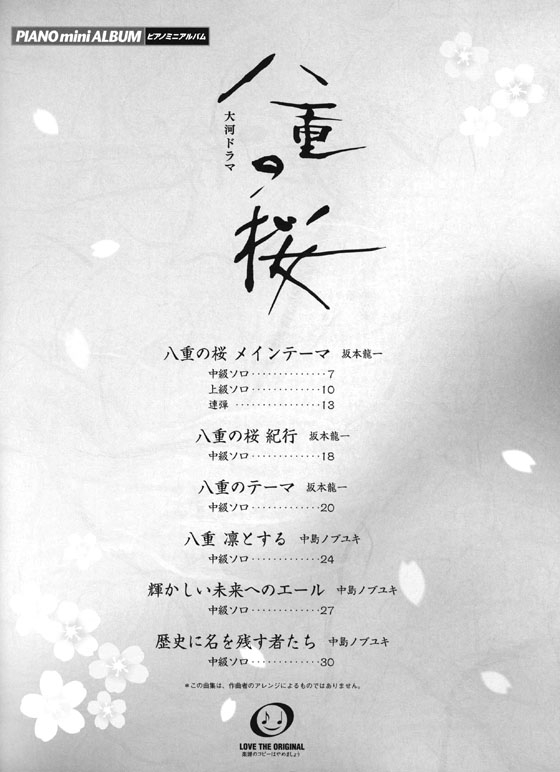 PIANO mini ALBUM ピアノミニアルバム
大河ドラマ
八重の桜
八重の桜 メインテーマ 坂本龍一
中級ソロ··············7
上級ソロ·············10
連弾 ················13
八重の桜 紀行 坂本龍一
中級ソロ·············18
八重のテーマ 坂本龍一
中級ソロ·············20
八重 凛とする 中島ノブユキ
中級ソロ·············24
輝かしい未来へのエール 中島ノブユキ
中級ソロ·············27
歴史に名を残す者たち 中島ノブユキ
中級ソロ·············30
＊この曲集は、作曲者のアレンジによるものではありません。
LOVE THE ORIGINAL
楽譜のコピーはやめましょう